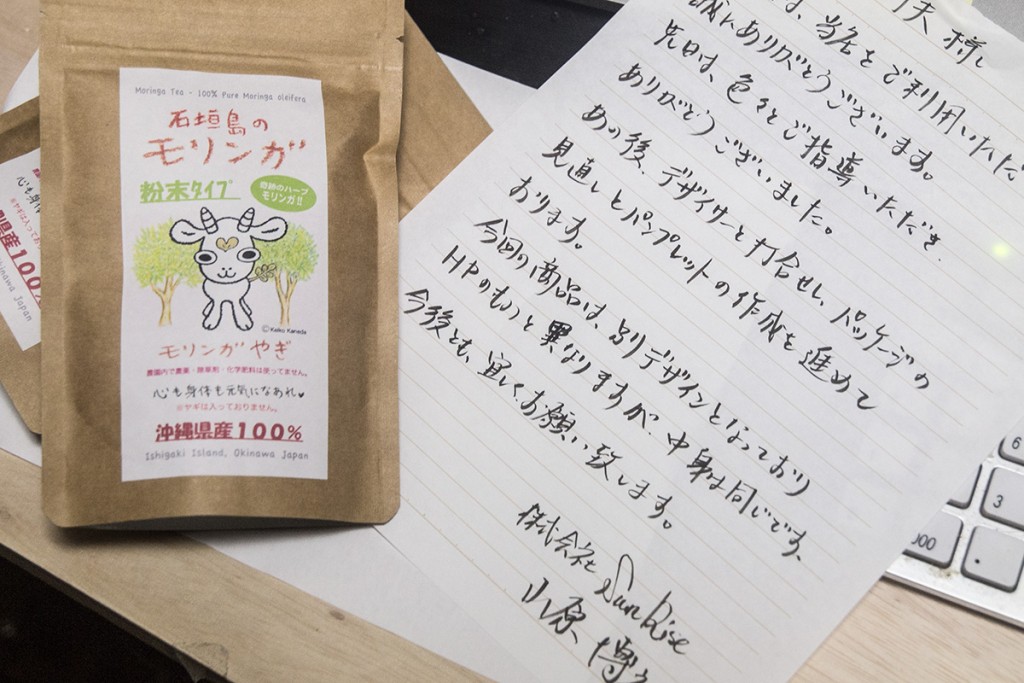 Moringa Tea - 100% Pure Moringa oleifera
石垣島の
モリンガ
粉末タイプ
奇跡のハーブ
モリンガ!!
©Keiko Kaneda
モリンガやぎ
農園内で農薬・除草剤・化学肥料は使ってません。
心も身体も元気になあれ♥
※ヤギは入っておりません。
沖縄県産100%
Ishigaki Island, Okinawa Japan
心も身体
※ヤギは入ってお
県産100%
Okinawa Japan
様
は、当店をご利用いただき
誠にありがとうございます。
先日は、色々とご指導いただき、
ありがとうございました。
あの後、デザイナーと打合せし、パッケージの
見直しとパンフレットの作成を進めて
おります。
今回の商品は、別デザインとなっており
HPのものと異なりますが、中身は同じです。
今後とも、宜しくお願い致します。
株式会社 SunRise
山原 博
6
3
00